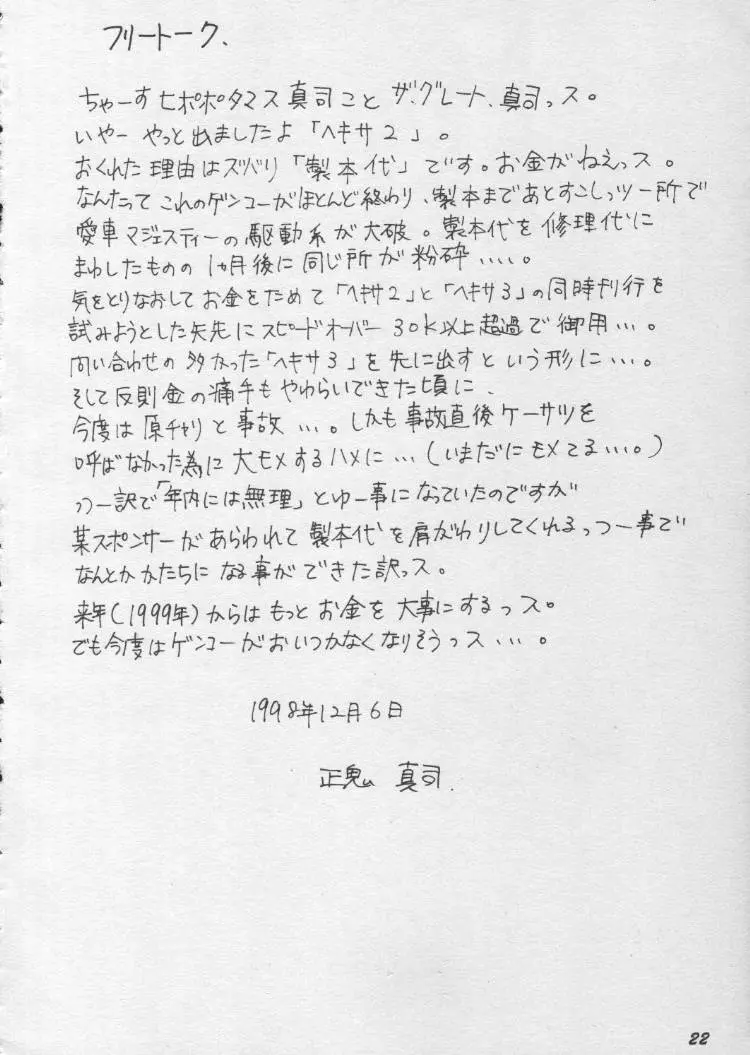 フリートーク、
ちゃーすヒポポタマス真司こと ザ.グレート、真司っス。
いやー やっと出ましたよ「ヘキサ2」。
おくれた理由はズバリ「製本代」です。お金がねえっス。
なんたって これのゲンコーがほとんど終わり、製本まであとすこしっツー所で
愛車マジェスティーの駆動系が大破。製本代を修理代に
まわしたものの 1ヵ月後に同じ所が粉砕....。
気をとりなおして お金をためて「ヘキサ2」と「ヘキサ3」の同時刊行を
試みようとした矢先にスピードオーバー 30k以上超過で御用...。
問い合わせの 多かった「ヘキサ3」を先に出すという形に...。
そして反則金の痛手もやわらいできた頃に、
今度は原チャリと事故...。しかも事故直後ケーサツを
呼ばなかった為に 大モメするハメに...(いまだにモメてる...。)
っつー訳で「年内には無理」とゆー事になっていたのですが
某スポンサーがあらわれて 製本代を肩がわりしてくれるっつー事で
なんとかかたちに なる事ができた訳っス。
来年(1999年)からはもっとお金を大事にするっス。
でも今度はゲンコーがおいつかなくなりそうっス...。
1998年12月6日
正鬼 真司.
22